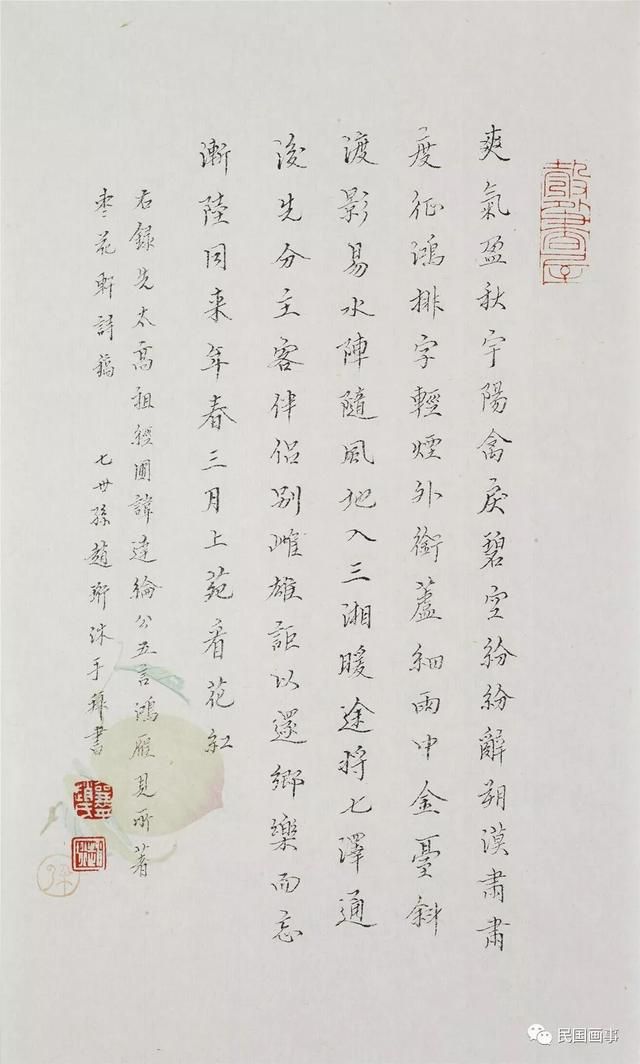 彀外書屋
爽氣盈秋宇陽禽戾碧空紛紛辭朔漠肅肅
度征鴻排字輕煙外銜蘆細雨中金臺斜
渡影易水陣隨風地入三湘暖途將七澤通
後先分主客伴侶別雌雄詎以還鄉樂而忘
漸陸同来年春三月上苑看花紅
右録先太高祖經圃諱達綸公五言鴻雁見所著
枣花軒詩稿 七世孫趙珩沐手拜書
民国画事